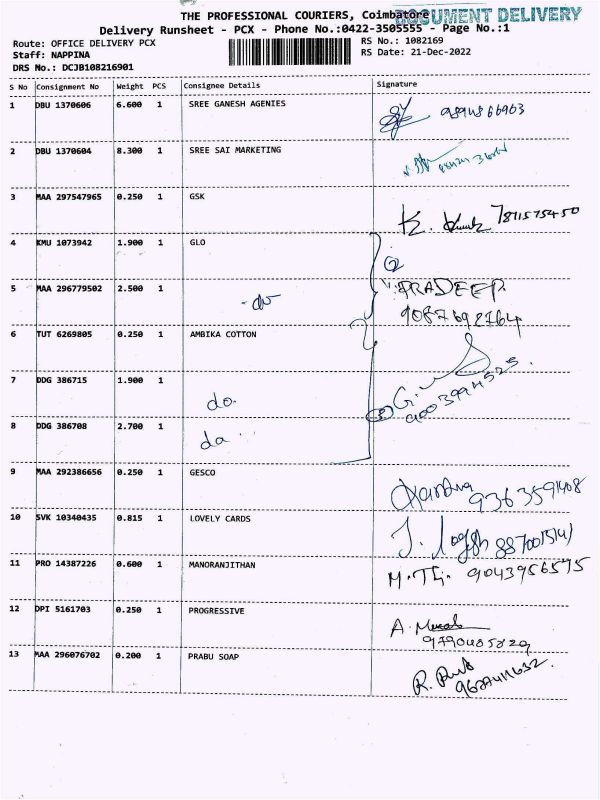 THE PROFESSIONAL COURIERS, Coimbatore
DOCUMENT DELIVERY
Delivery Runsheet - PCX - Phone No.:0422-3505555 - Page No.:1
Route: OFFICE DELIVERY PCX
RS No.: 1082169
Staff: NAPPINA
RS Date: 21-Dec-2022
DRS No.: DCJB108216901
S No Consignment No Weight PCS Consignee Details Signature
1 DBU 1370606 6.600 1 SREE GANESH AGENIES 9894866963
2 DBU 1370604 8.300 1 SREE SAI MARKETING
3 MAA 297547965 0.250 1 GSK K. 7811575450
4 KMU 1073942 1.900 1 GLO
5 MAA 296779502 2.500 1 -do- PRADEEP
9087692764
6 TUT 6269805 0.250 1 AMBIKA COTTON
7 DDG 386715 1.900 1 do. G. 9003994525
8 DDG 386708 2.700 1 da
9 MAA 292386656 0.250 1 GESCO 9363591408
10 SVK 10340435 0.815 1 LOVELY CARDS J. 8870015141
11 PRO 14387226 0.600 1 MANORANJITHAN M.Th. 9043956575
12 DPI 5161703 0.250 1 PROGRESSIVE A.
9790485829
13 MAA 296076702 0.200 1 PRABU SOAP R.